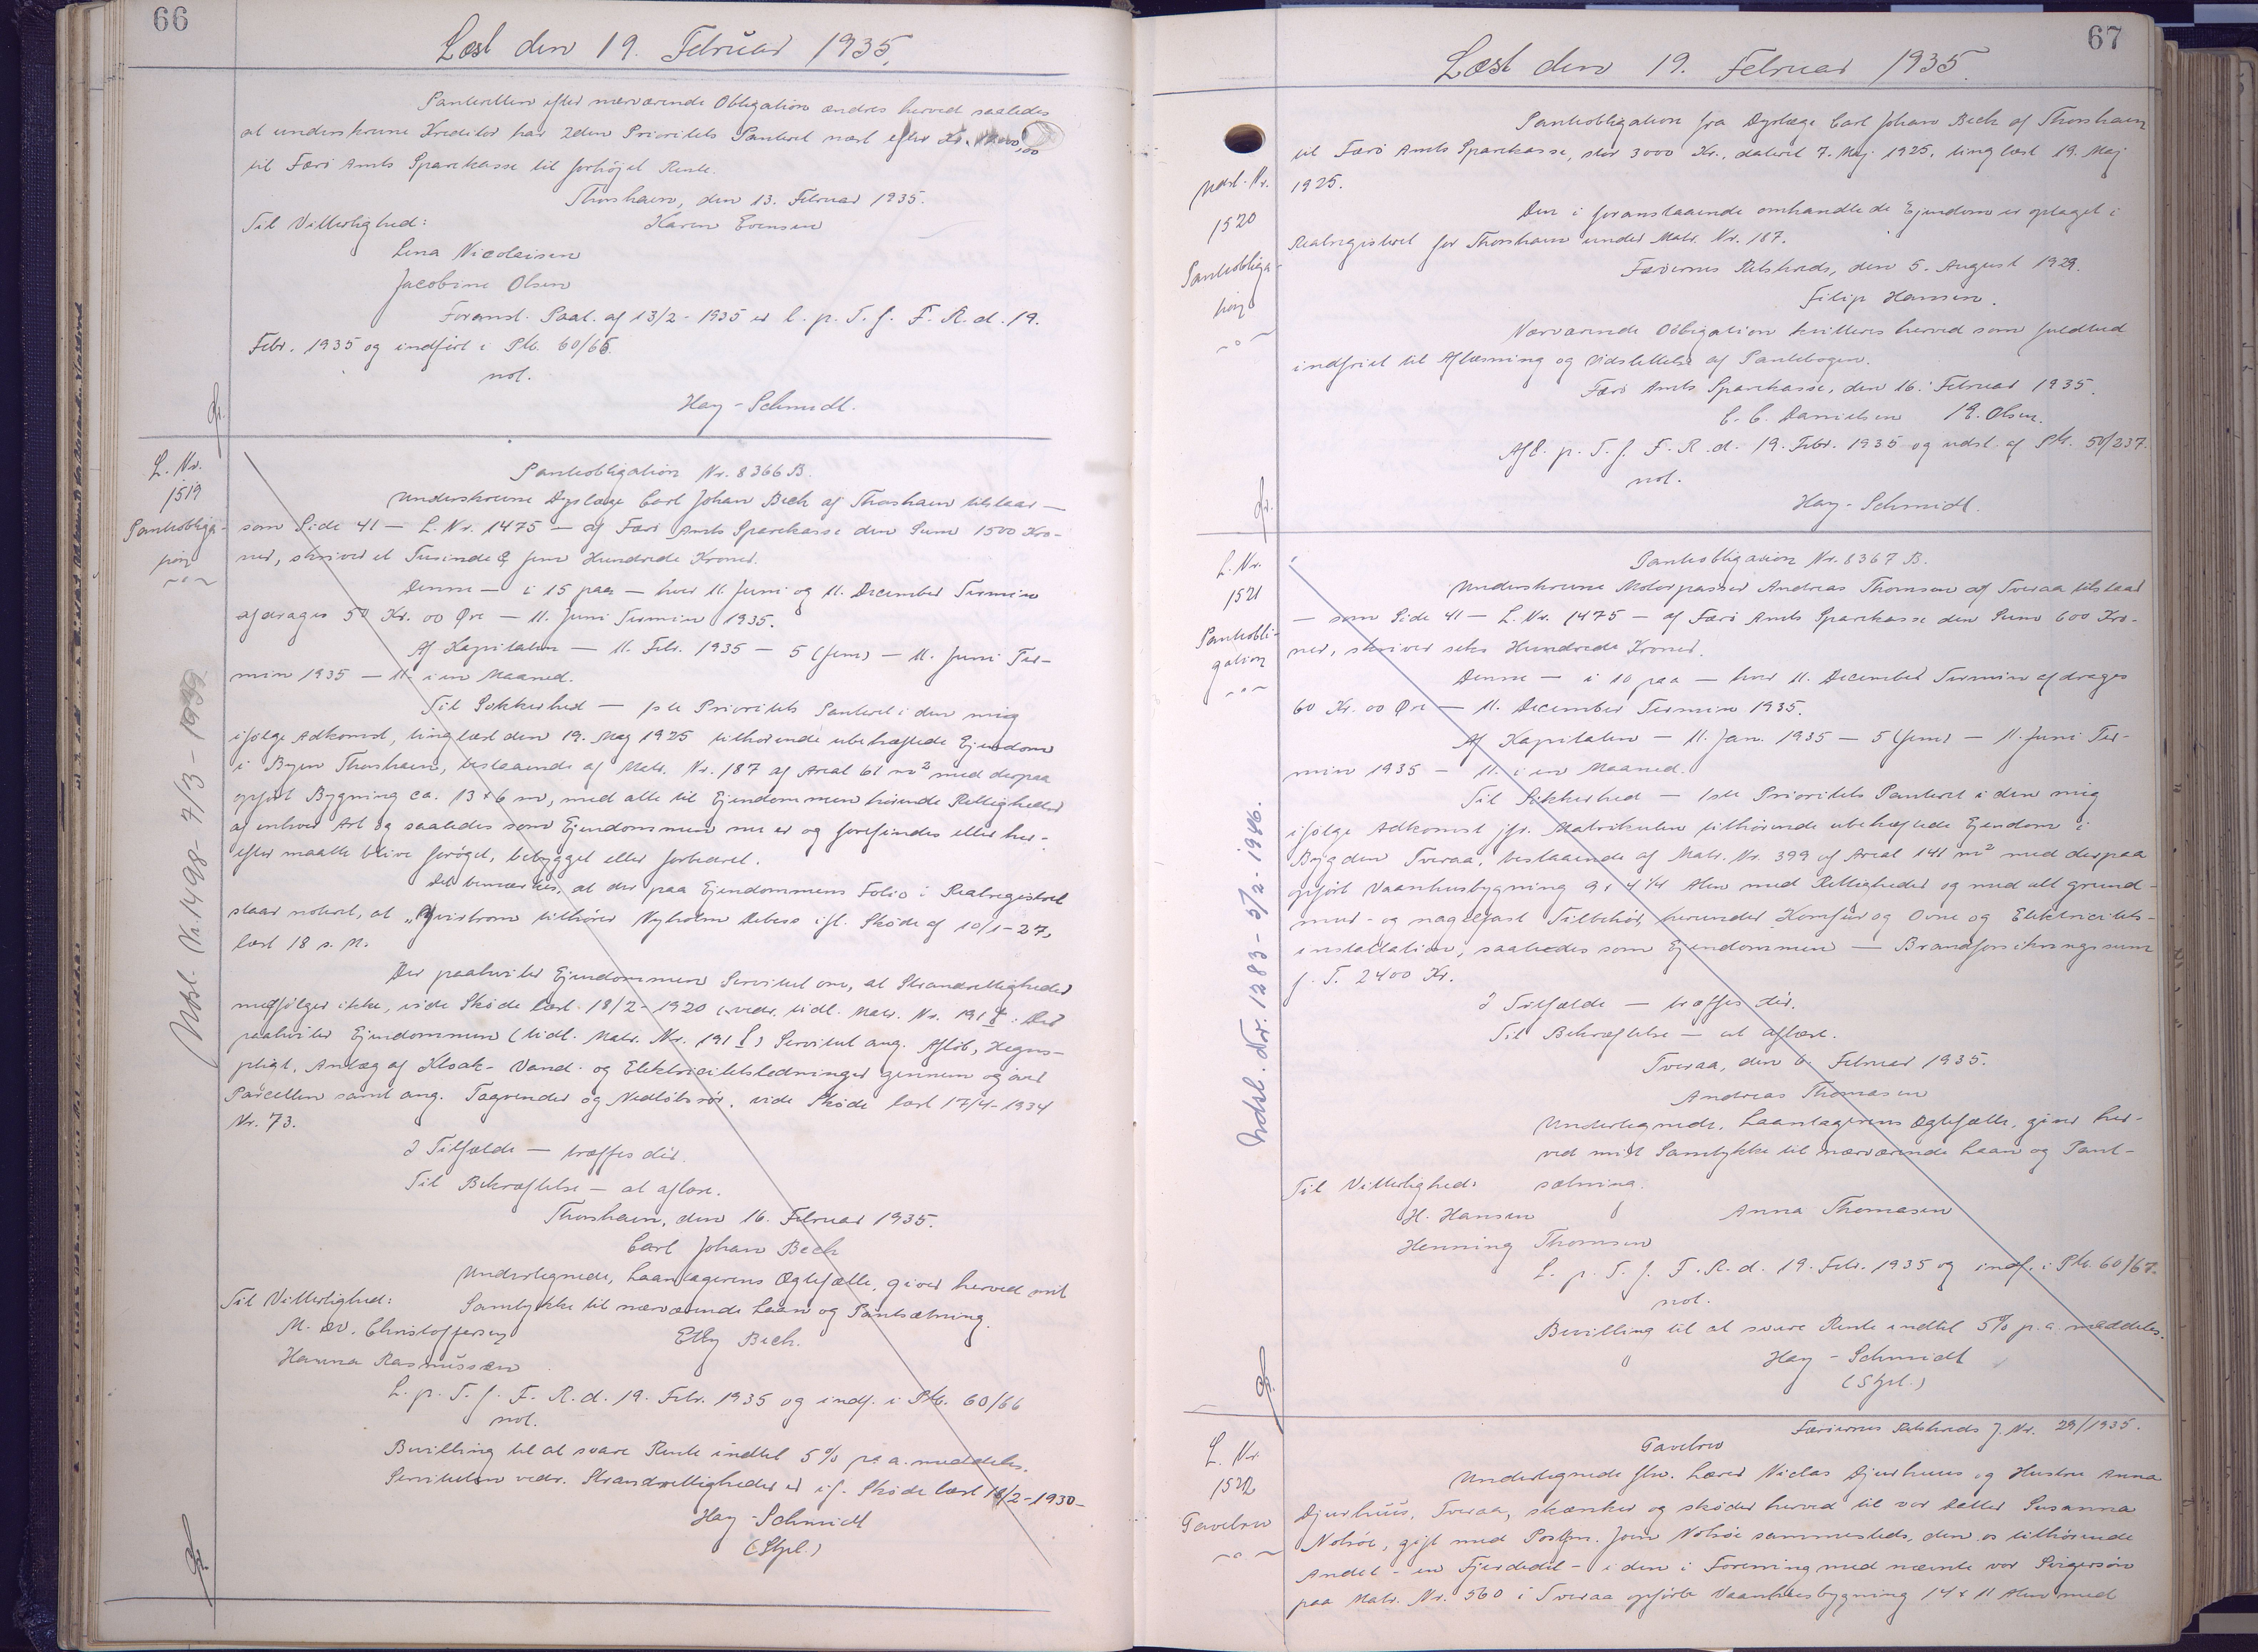 66
Læst den 19. Februar 1935.
Panteretten efter nærværende Obligation ændres herved saaledes
at underskrevne Kreditor har 2den Prioritets Panteret næst efter Kr.
til Færø Amts Sparekasse til forhøjet Rente.
Thorshavn, den 13. Februar 1935.
Til Vitterlighed: Karen Evensen
Lena Nicolaisen
Jacobine Olsen
Foranst. Paat. af 13/2 - 1935 er l. p. T. f. F. R. d. 19.
Febr. 1935 og indført i Ptb. 60/66.
not.
Hay-Schmidt.
L. Nr.
1519
Pantobliga-
tion
Udsl. (Nr. 1498 - 7/3 - 1939
Pantobligation Nr. 8366 B.
Underskrevne Dyrlæge Carl Johan Bech af Thorshavn tilstaar —
som Side 41 — L. Nr. 1475 — af Færø Amts Sparekasse den Sum 1500 Kro-
ner, skriver et Tusinde & fem Hundrede Kroner.
Denne — i 15 paa — hver 11. Juni og 11. December Termin
afdrages 50 Kr. 00 Øre — 11. Juni Termin 1935.
Af Kapitalen — 11. Febr. 1935 — 5 (fem) — 11. Juni Ter-
min 1935 — 11. i en Maaned.
Til Sikkerhed — 1ste Prioritets Panteret i den mig
ifølge Adkomst, tinglæst den 19. Maj 1925 tilhørende ubehæftede Ejendom
i Byen Thorshavn, bestaaende af Matr. Nr. 187 af Areal 61 m² med derpaa
opført Bygning ca. 13 x 6 m, med alle til Ejendommen hørende Rettigheder
af enhver Art og saaledes som Ejendommen nu er og forefindes eller her-
efter maatte blive forøget, bebygget eller forbedret.
Det bemærkes, at der paa Ejendommens Folio i Realregistret
staar noteret, at „ tilhører Nyholm Debess ifl. Skøde af 10/1-27,
læst 18 s. M.
Der paahviler Ejendommen Servitut om, at Strandrettigheder
medfølger ikke, vide Skøde læst 18/2-1920 (vedr. tidl. Matr. Nr. 191 . Det
paahviler Ejendommen (tidl. Matr. Nr. 191 ) Servitut ang. Afløb, Hegns-
pligt, Anlæg af Kloak- Vand- og Elektricitetsledninger gennem og over
Parcellen samt ang. Tagrender og Nedløbsrør. vide Skøde læst 17/4-1934
Nr. 73.
I Tilfælde — træffes dér.
Til Bekræftelse — at aflæse.
Thorshavn, den 16. Februar 1935.
Carl Johan Bech
Undertegnede, Laantagerens Ægtefælle, giver herved mit
Til Vitterlighed: Samtykke til nærværende Laan og Pantsætning.
M. Chr. Christoffersen Etly Bech.
Hanna Rasmussen
L. p. T. f. F. R. d. 19. Febr. 1935 og indf. i Ptb. 60/66
not.
Bevilling til at svare Rente indtil 5% p. a. meddeles.
Servituten vedr. Strandrettigheder er ifl. Skøde læst 18/2-1930-
Hay-Schmidt
(Stpl.)
67
Læst den 19. Februar 1935.
Udsl. Nr.
1520
Pantobliga-
tion
Pantobligation fra Dyrlæge Carl Johan Bech af Thorshavn
til Færø Amts Sparekasse, stor 3000 Kr., dateret 7. Maj 1925, tinglæst 19. Maj
1925.
Den i foranstaaende omhandlede Ejendom er optaget i
Realregistret for Thorshavn under Matr. Nr. 187.
Færøernes Retskreds, den 5. August 1929.
Filip Hansen.
Nærværende Obligation kvitteres herved som fuldtud
indfriet til Aflæsning og Udslettelse af Pantebogen.
Færø Amts Sparekasse, den 16. Februar 1935.
C. C. Danielsen P. Olsen.
Afl. p. T. f. F. R. d. 19. Febr. 1935 og udsl. af Ptb. 50/237.
not.
Hay-Schmidt.
L. Nr.
1521
Pantobli-
gation
Udsl. Nr. 1283 - 5/2 - 1946.
Pantobligation Nr. 8367 B.
Underskrevne Motorpasser Andreas Thomsen af Tveraa tilstaar
— som Side 41 — L. Nr. 1475 — af Færø Amts Sparekasse den Sum 600 Kro-
ner, skriver seks Hundrede Kroner.
Denne — i 10 paa — hver 11. December Termin afdrages
60 Kr. 00 Øre — 11. December Termin 1935.
Af Kapitalen — 11. Jan. 1935 — 5 (fem) — 11. Juni Ter-
min 1935 — 11. i en Maaned.
Til Sikkerhed — 1ste Prioritets Panteret i den mig
ifølge Adkomst jfr. Matrikulen tilhørende ubehæftede Ejendom i
Bygden Tveraa, bestaaende af Matr. Nr. 399 af Areal 141 m² med derpaa
opført Vaanhusbygning 9 x 4 1/4 Alen med Rettigheder og med alt grund-
mur- og nagelfast Tilbehør, herunder Komfur og Ovne og Elektricitets-
installation, saaledes som Ejendommen — Brandforsikringssum
f. T. 2400 Kr.
I Tilfælde — træffes dér.
Til Bekræftelse — at aflæse.
Tveraa, den 6. Februar 1935.
Andreas Thomasen
Undertegnede, Laantagerens Ægtefælle, giver her-
ved mit Samtykke til nærværende Laan og Pant-
Til Vitterlighed: sætning.
H. Hansen Anna Thomasen
Henning Thomsen
L. p. T. f. F. R. d. 19. Febr. 1935 og indf. i Ptb. 60/67.
not.
Bevilling til at svare Rente indtil 5% p. a. meddeles.
Hay-Schmidt
(Stpl.)
L. Nr.
1522
Gavebrev
Færøernes Retskreds J. Nr. 29/1935.
Gavebrev
Undertegnede fhv. Lærer Niclas Djurhuus og Hustru Anna
Djurhuus, Tveraa, skænker og skøder herved til vor Datter Susanna
Nolsøe, gift med Postfm. Joen Nolsøe sammesteds, den os tilhørende
Andel - en Fjerdedel - i den i Forening med nævnte vor Svigersøn
paa Matr. Nr. 560 i Tveraa opførte Vaanhusbygning 14 x 11 Alen med